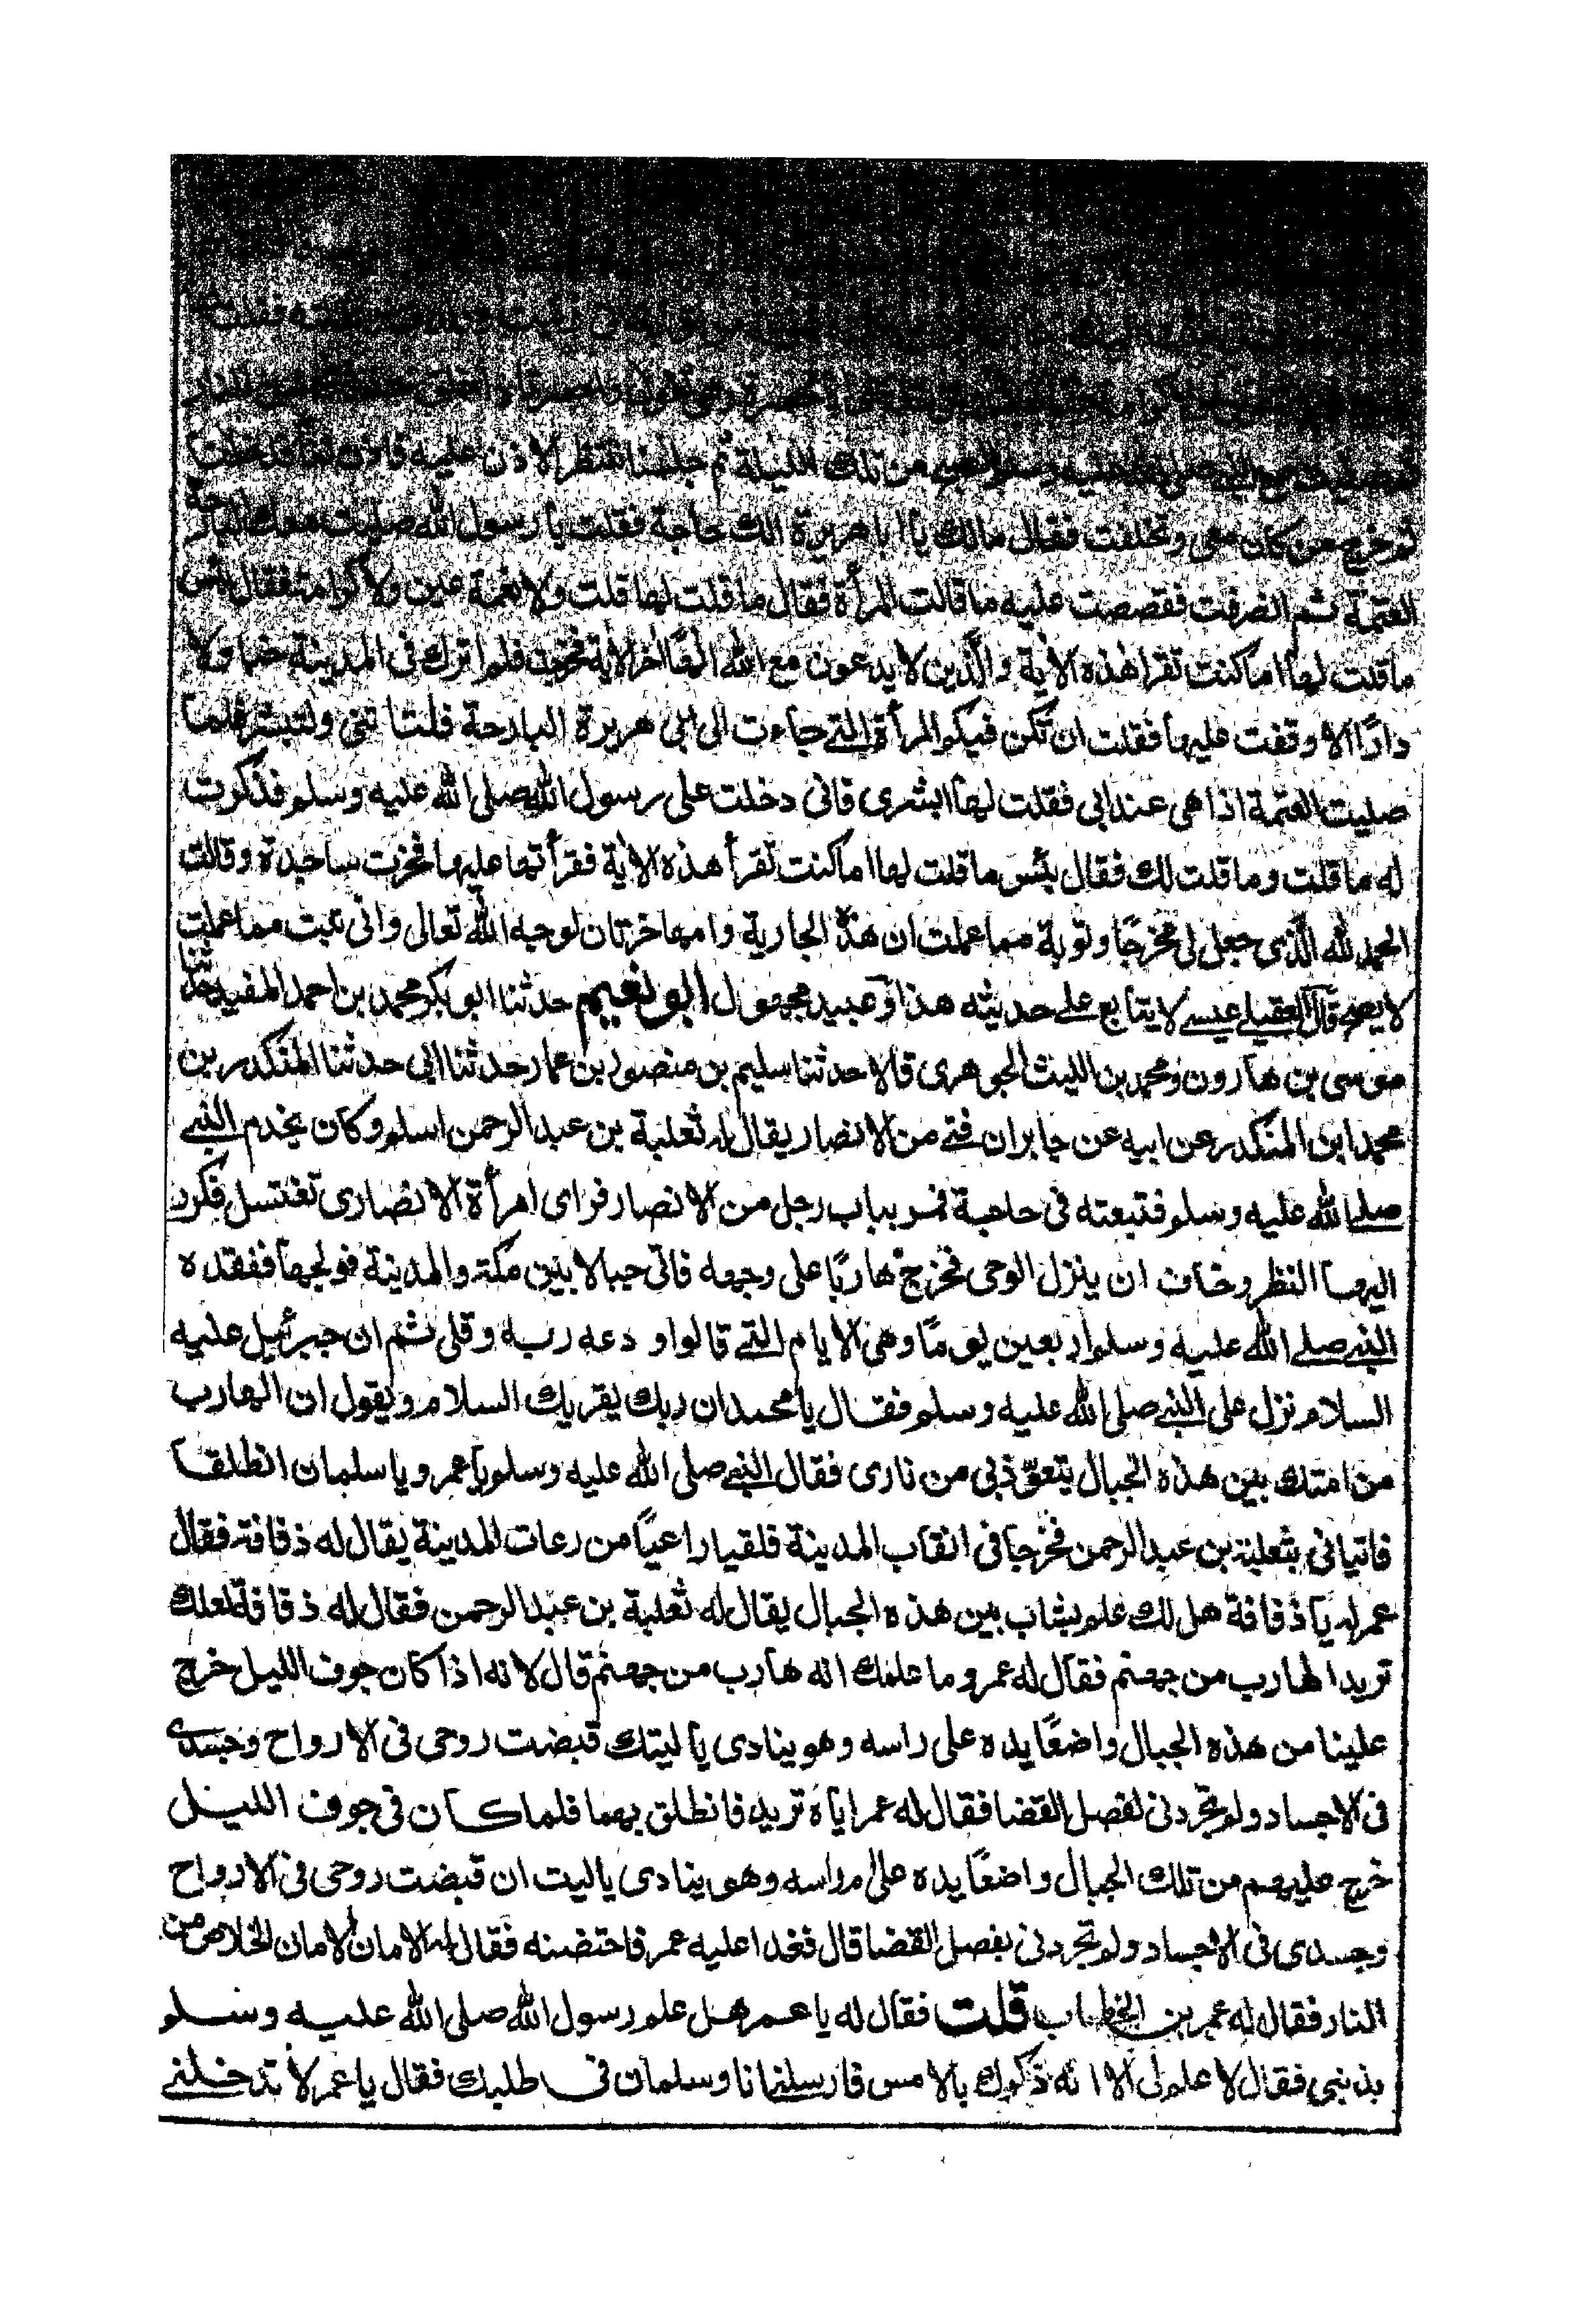 فقلت
من تلك الليلة ثم جلسنا ننتظر الاذن عليه فاذن لنا فدخلنا
ثم خرج من كان معى وتخلفت فقال مالك يا ابا هريرة الك حاجة فقلت يا رسول الله صليت معك البارحة
العتمة ثم انصرفت فقصصت عليه ما قالت المرأة فقال ما قلت لها قلت ولا نعمة عين ولا كرامة فقال بئس
ما قلت لها اما كنت تقرا هذه الاية والذين لا يدعون مع الله الها اخر الاية فخرجت فلم اترك فى المدينة خصا ولا
دارا الا وقفت عليها فقلت ان تكن فيكم المرأة التى جاءت الى ابى هريرة البارحة فلتاتنى ولتبشر فلما
صليت العتمة اذا هى عند بابى فقلت لها ابشرى فانى دخلت على رسول الله صلى الله عليه وسلم فذكرت
له ما قلت وما قلت لك فقال بئس ما قلت لها اما كنت تقرأ هذه الاية فقرأتها عليها فخرت ساجدة وقالت
الحمد لله الذى جعل لى مخرجا وتوبة مما عملت ان هذه الجارية وامها حرتان لوجه الله تعالى وانى تبت مما عملت
لا يصح قال العقيلى عيسى لا يتابع على حديثه هذا وعبيد مجهول ابو نعيم حدثنا ابو بكر محمد بن احمد المفيد حدثنا
موسى بن هارون ومحمد بن الليث الجوهرى قالا حدثنا سليم بن منصور بن عمار حدثنا ابى حدثنا المنكدر بن
محمد ابن المنكدر عن ابيه عن جابر ان فتى من الانصار يقال له ثعلبة بن عبد الرحمن اسلم وكان يخدم النبى
صلى الله عليه وسلم فتبعته فى حاجة فمر بباب رجل من الانصار فراى امرأة الانصارى تغتسل فكرر
اليها النظر وخاف ان ينزل الوحى فخرج هاربا على وجهه فاتى جبالا بين مكة والمدينة فولجها ففقده
النبى صلى الله عليه وسلم اربعين يوما وهى الايام التى قالوا ودعه ربه وقلى ثم ان جبرئيل عليه
السلام نزل على النبى صلى الله عليه وسلم فقال يا محمد ان ربك يقريك السلام ويقول ان الهارب
من امتك بين هذه الجبال يتعوّذ بى من نارى فقال النبى صلى الله عليه وسلم يا عمر ويا سلمان انطلقا
فاتيانى بثعلبة بن عبد الرحمن فخرجا فى انقاب المدينة فلقيا راعيا من رعات المدينة يقال له ذفافة فقال
عمر له يا ذفافة هل لك علم بشاب بين هذه الجبال يقال له ثعلبة بن عبد الرحمن فقال له ذفافة لعلك
تريد الهارب من جهنم فقال له عمر وما علمك انه هارب من جهنم قال لانه اذا كان جوف الليل خرج
علينا من هذه الجبال واضعا يده على راسه وهو ينادى يا ليتك قبضت روحى فى الارواح وجسدى
فى الاجساد ولم تجردنى لفصل القضا فقال له عمر اياه تريد فانطلق بهما فلما كان فى جوف الليل
خرج عليهم من تلك الجبال واضعا يده على راسه وهو ينادى ياليت ان قبضت روحى فى الارواح
وجسدى فى الاجساد ولم تجردنى بفصل القضا قال فغدا عليه عمر فاحتضنه فقال له الامان الامان الخلاص من
النار فقال له عمر بن الخطاب قلت فقال له يا عمر هل علم رسول الله صلى الله عليه وسلم
بذنبى فقال لا علم لى الا انه ذكرك بالامس فارسلنى انا وسلمان فى طلبك فقال يا عمر لا تدخلنى